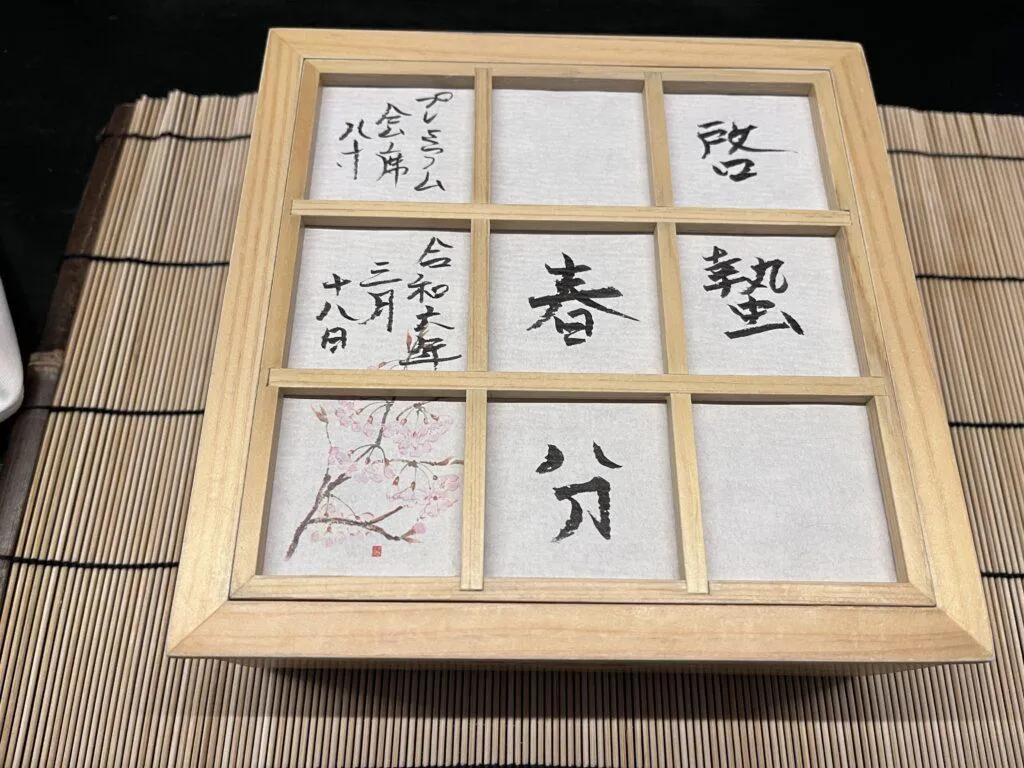 啓蟄
春分
プレミアム
会席
八寸
令和六年
三月
十八日